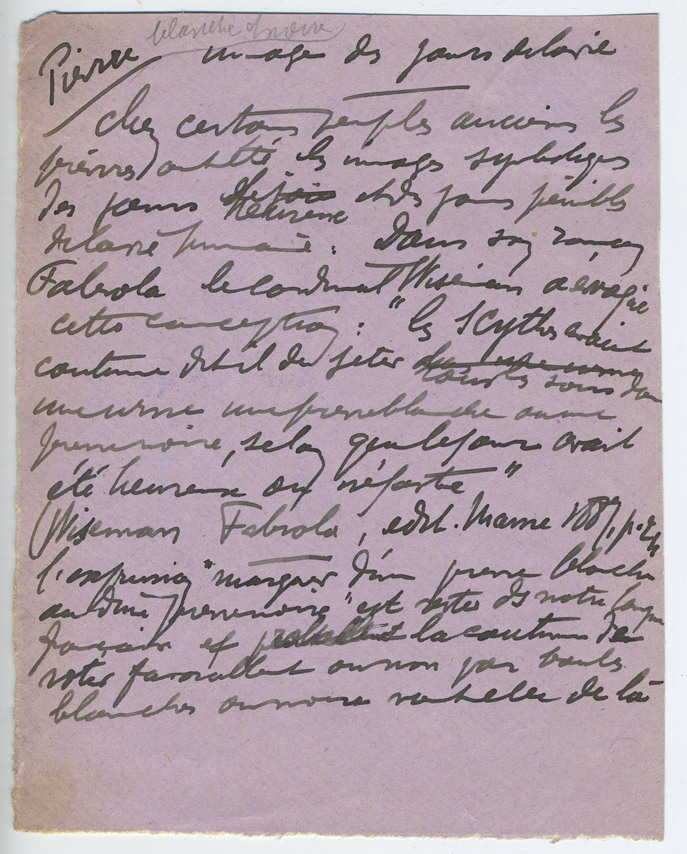 blanche ou noire
Pierre image des jours de la vie
Chez certains peuples anciens les
pierres ont été les images symboliques
des jours heureux et des jours pénibles
de la vie humaine. Dans son roman
Fabiola le cardinal Wiseman a évoqué
cette conception : "les Scythes avaient
coutume dit-il de jeter tous les soirs dans
une urne une pierre blanche ou une
pierre noire, selon que le jour avait
été heureux ou néfaste"
Wiseman Fabiola, edit. Mame 1887, p.
l'expression "marquer d'une pierre blanche
ou d'une pierre noire" est restée dans notre langue
française et la coutume de
voter favorablement ou non par boules
blanches ou noires vient-elle de là